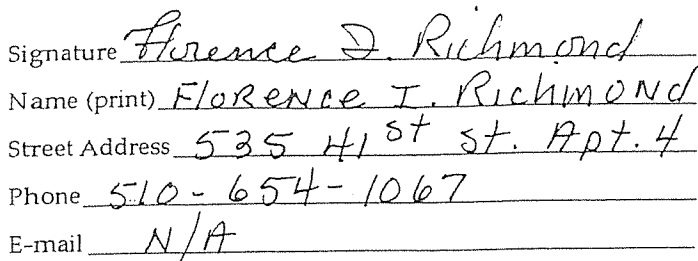 Signature Florence I. Richmond
Name (print) Florence I. Richmond
Street Address 535 41st st. Apt. 4
Phone 510-654-1067
E-mail N/A